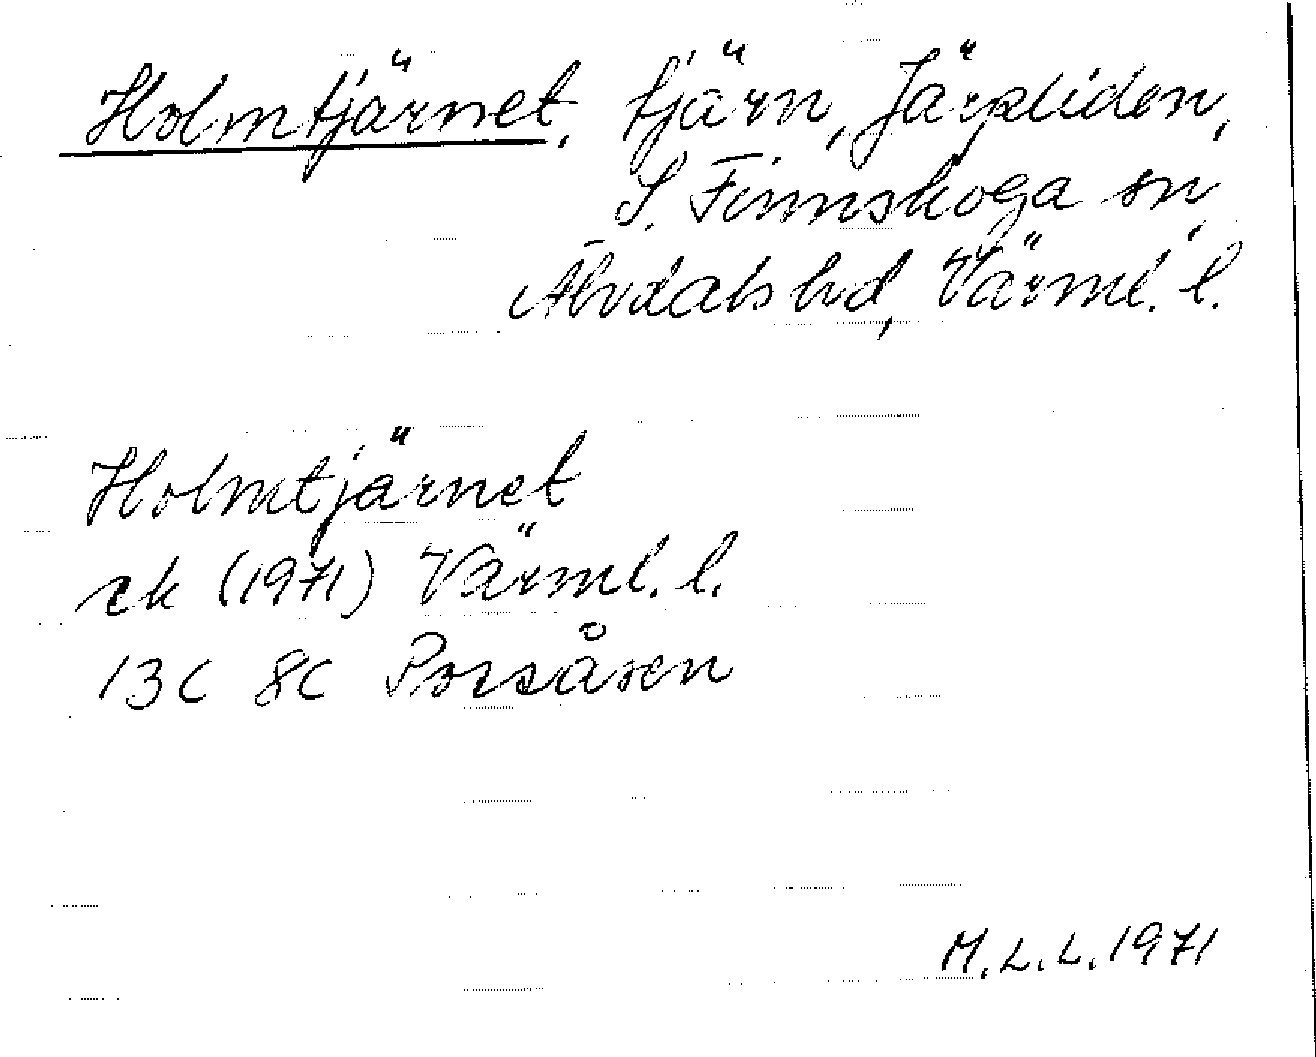 Holmtjärnet, tjärn, Järpliden,
S. Finnskoga sn
Älvdals hd, Värml. l.
Holmtjärnet
ek (1971) Värml. l.
13C 8C Porsåsen
M.L.L. 1971